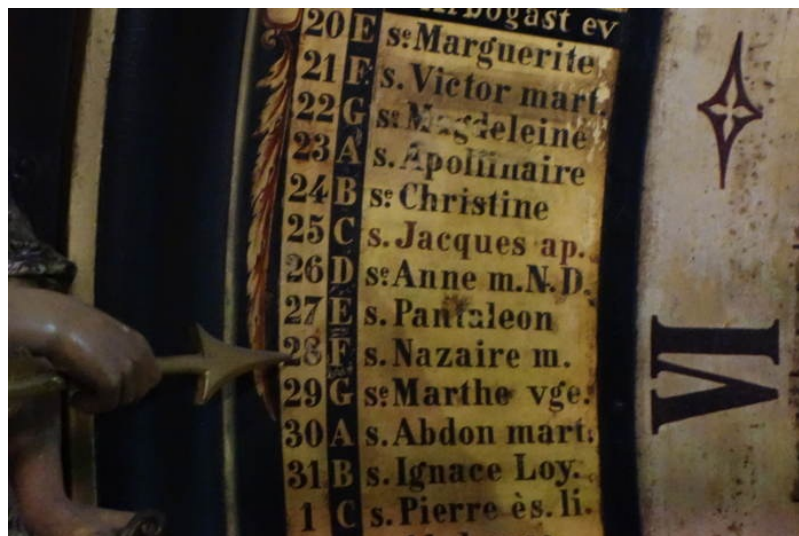 Arbogast ev
20 E se Marguerite
21 F s. Victor mart.
22 G se Magdeleine
23 A s. Apollinaire
24 B se Christine
25 C s. Jacques ap.
26 D se Anne m. N. D.
27 E s. Pantaleon
28 F s. Nazaire m.
29 G se Marthe vge.
30 A s. Abdon mart.
31 B s. Ignace Loy.
1 C s. Pierre ès. li.
VI